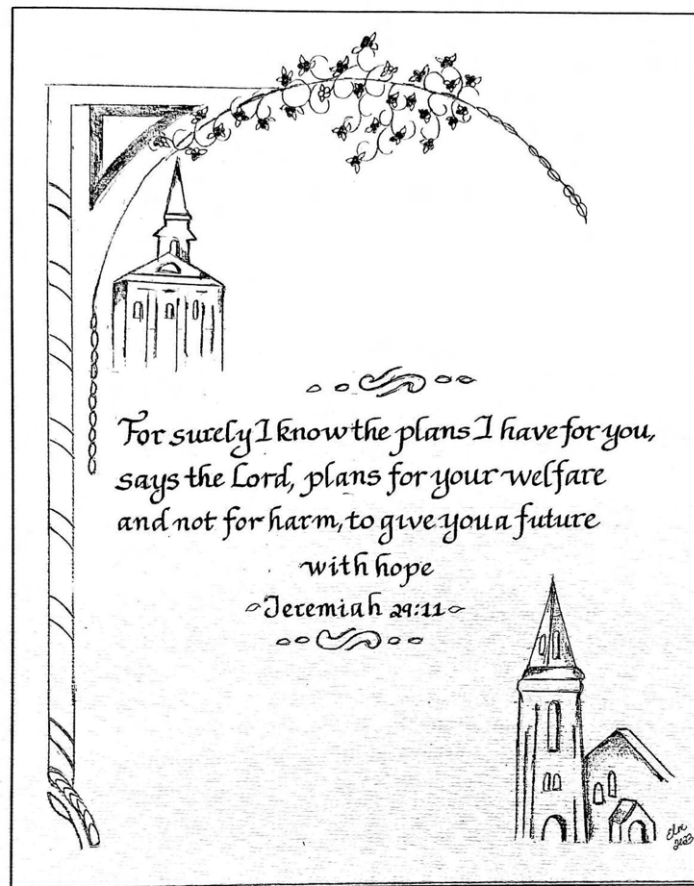 For surely I know the plans I have for you,
says the Lord, plans for your welfare
and not for harm, to give you a future
with hope
Jeremiah 29:11
2023